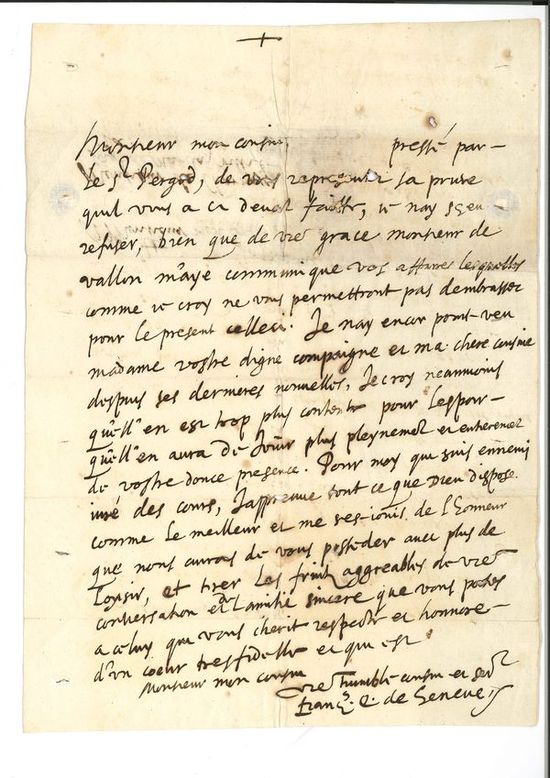 +
Monsieur mon cousin, pressé par
le Sr Pergod, de vous representer la prinse
quil vous a ci devant faitte, ie nay sceu
refuser, bien que de vre grace monsieur de
vallon m'aye communique vos affaires lesquelles
comme ie croy ne vous permettront pas dembrasser
pour le present celleci. Je nay encor point veu
madame vostre digne compaigne et ma chere cousine
despuis ses dernieres nouvelles, Je croy neanmoins
qu'ell'en est trop plus contente pour lespoir
qu'ell'en aura de Jouir plus pleynement et entierement
de vostre douce presence. Pour moy qui suis ennemi
iuré des cours, J'appreuve tout ce que Dieu dispose
comme le meilleur et me res-iouis de l'honneur
que nous aurons de vous posseder avec plus de
loysir, et tirer les fruitz aggreables de vre
conversation et de l'amitié sincere que vous portes
a celuy qui vous cherit respecte et honnore
d'un coeur tresfidelle et qui est
Monsieur mon cousin
vre humble cousin et serr
Françs. E. de Geneve